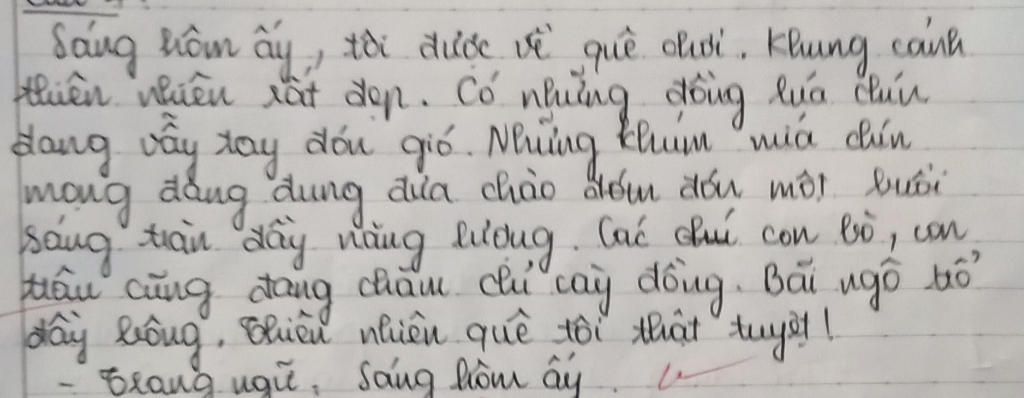 Sáng hôm ấy, tôi được về quê chơi. Khung cảnh
thiên nhiên rất đẹp. Có những đồng lúa chín
đang vẫy tay đón gió. Những khúm mía chín
mọng đang đung đưa chào đón một buổi
sáng tràn đầy năng lượng. Các chú con bò, con
trâu cũng đang chăm chỉ cày đồng. Bãi ngô trổ
đầy bông. Thiên nhiên quê tôi thật tuyệt!
- Trạng ngữ: Sáng hôm ấy.